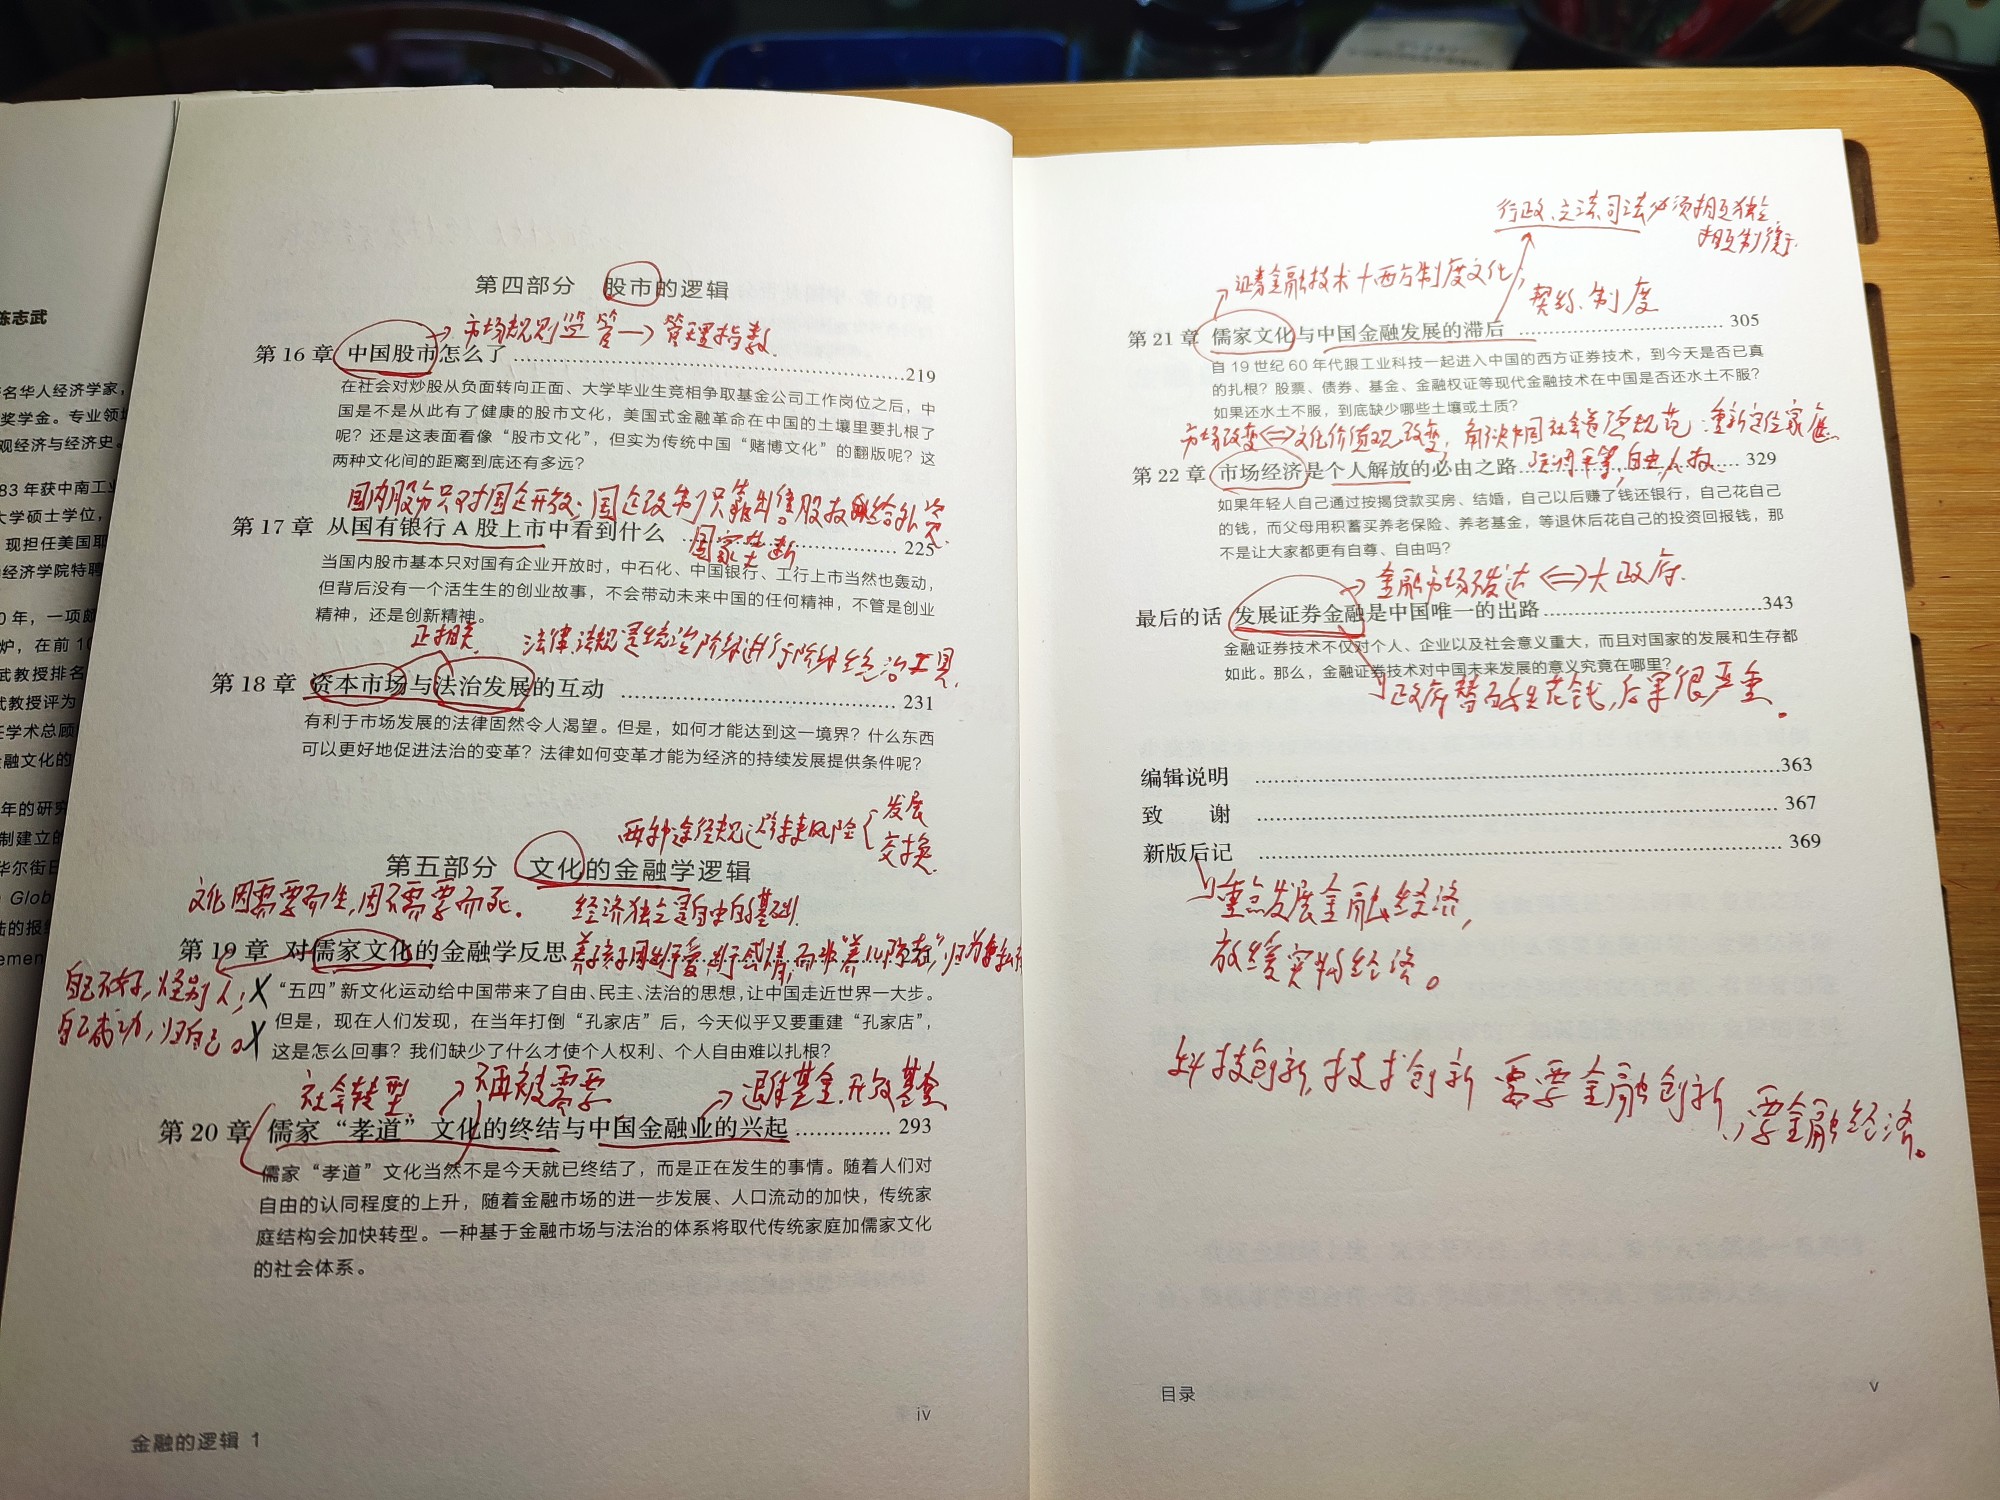 陈志武
名华人经济学家，
奖学金。专业领
观经济与经济史。
83年获中南工业
大学硕士学位，
现担任美国耶
经济学院特聘
0年，一项颇
炉，在前10
武教授排名
武教授评为
任学术总顾
金融文化的
年的研究
制建立的
华尔街日
Glob
陆的报纸
emen
第四部分 股市的逻辑
市场规则监管→管理指数.
第 16 章 中国股市怎么了 219
在社会对炒股从负面转向正面、大学毕业生竞相争取基金公司工作岗位之后，中
国是不是从此有了健康的股市文化，美国式金融革命在中国的土壤里要扎根了
呢？还是这表面看像“股市文化”，但实为传统中国“赌博文化”的翻版呢？这
两种文化间的距离到底还有多远？
国内股份只对国企开放；国企改制只靠出售股权给外资
第 17 章 从国有银行 A 股上市中看到什么 225
国家垄断
当国内股市基本只对国有企业开放时，中石化、中国银行、工行上市当然也轰动，
但背后没有一个活生生的创业故事，不会带动未来中国的任何精神，不管是创业
精神，还是创新精神。
正相关.
法律.法规是统治阶级进行阶级统治工具.
第 18 章 资本市场与法治发展的互动 231
有利于市场发展的法律固然令人渴望。但是，如何才能达到这一境界？什么东西
可以更好地促进法治的变革？法律如何变革才能为经济的持续发展提供条件呢？
两种途径规避未来风险
发展
交换.
第五部分 文化的金融学逻辑
文化因需要而生,因不需要而死。
经济独立是自由的基础.
第 19 章 对儒家文化的金融学反思 271
养孩子因为爱,
自己不好,怪别人; X
自己成功,归自己。X
“五四”新文化运动给中国带来了自由、民主、法治的思想，让中国走近世界一大步。
但是，现在人们发现，在当年打倒“孔家店”后，今天似乎又要重建“孔家店”，
这是怎么回事？我们缺少了什么才使个人权利、个人自由难以扎根？
社会转型
不再被需要
退休基金.开放基金
第 20 章 儒家“孝道”文化的终结与中国金融业的兴起 293
儒家“孝道”文化当然不是今天就已终结了，而是正在发生的事情。随着人们对
自由的认同程度的上升，随着金融市场的进一步发展、人口流动的加快，传统家
庭结构会加快转型。一种基于金融市场与法治的体系将取代传统家庭加儒家文化
的社会体系。
iv
金融的逻辑 1
行政、立法、司法必须相互独立
相互制衡.
证券金融技术+西方制度文化;
契约、制度
第 21 章 儒家文化与中国金融发展的滞后 305
自 19 世纪 60 年代跟工业科技一起进入中国的西方证券技术，到今天是否已真
的扎根？股票、债券、基金、金融权证等现代金融技术在中国是否还水土不服？
如果还水土不服，到底缺少哪些土壤或土质？
市场改变⇔文化价值观改变,解决中国社会道德规范:重新定位家庭
第 22 章 市场经济是个人解放的必由之路 329
强调平等,自由,人权
如果年轻人自己通过按揭贷款买房、结婚，自己以后赚了钱还银行，自己花自己
的钱，而父母用积蓄买养老保险、养老基金，等退休后花自己的投资回报钱，那
不是让大家都更有自尊、自由吗？
金融市场发达⇔大政府.
最后的话 发展证券金融是中国唯一的出路 343
金融证券技术不仅对个人、企业以及社会意义重大，而且对国家的发展和生存都
如此。那么，金融证券技术对中国未来发展的意义究竟在哪里？
政府替百姓花钱,后果很严重。
编辑说明 363
致 谢 367
新版后记 369
重点发展金融经济,
放缓实物经济。
科技创新,技术创新 需要金融创新,要金融经济。
目录
v